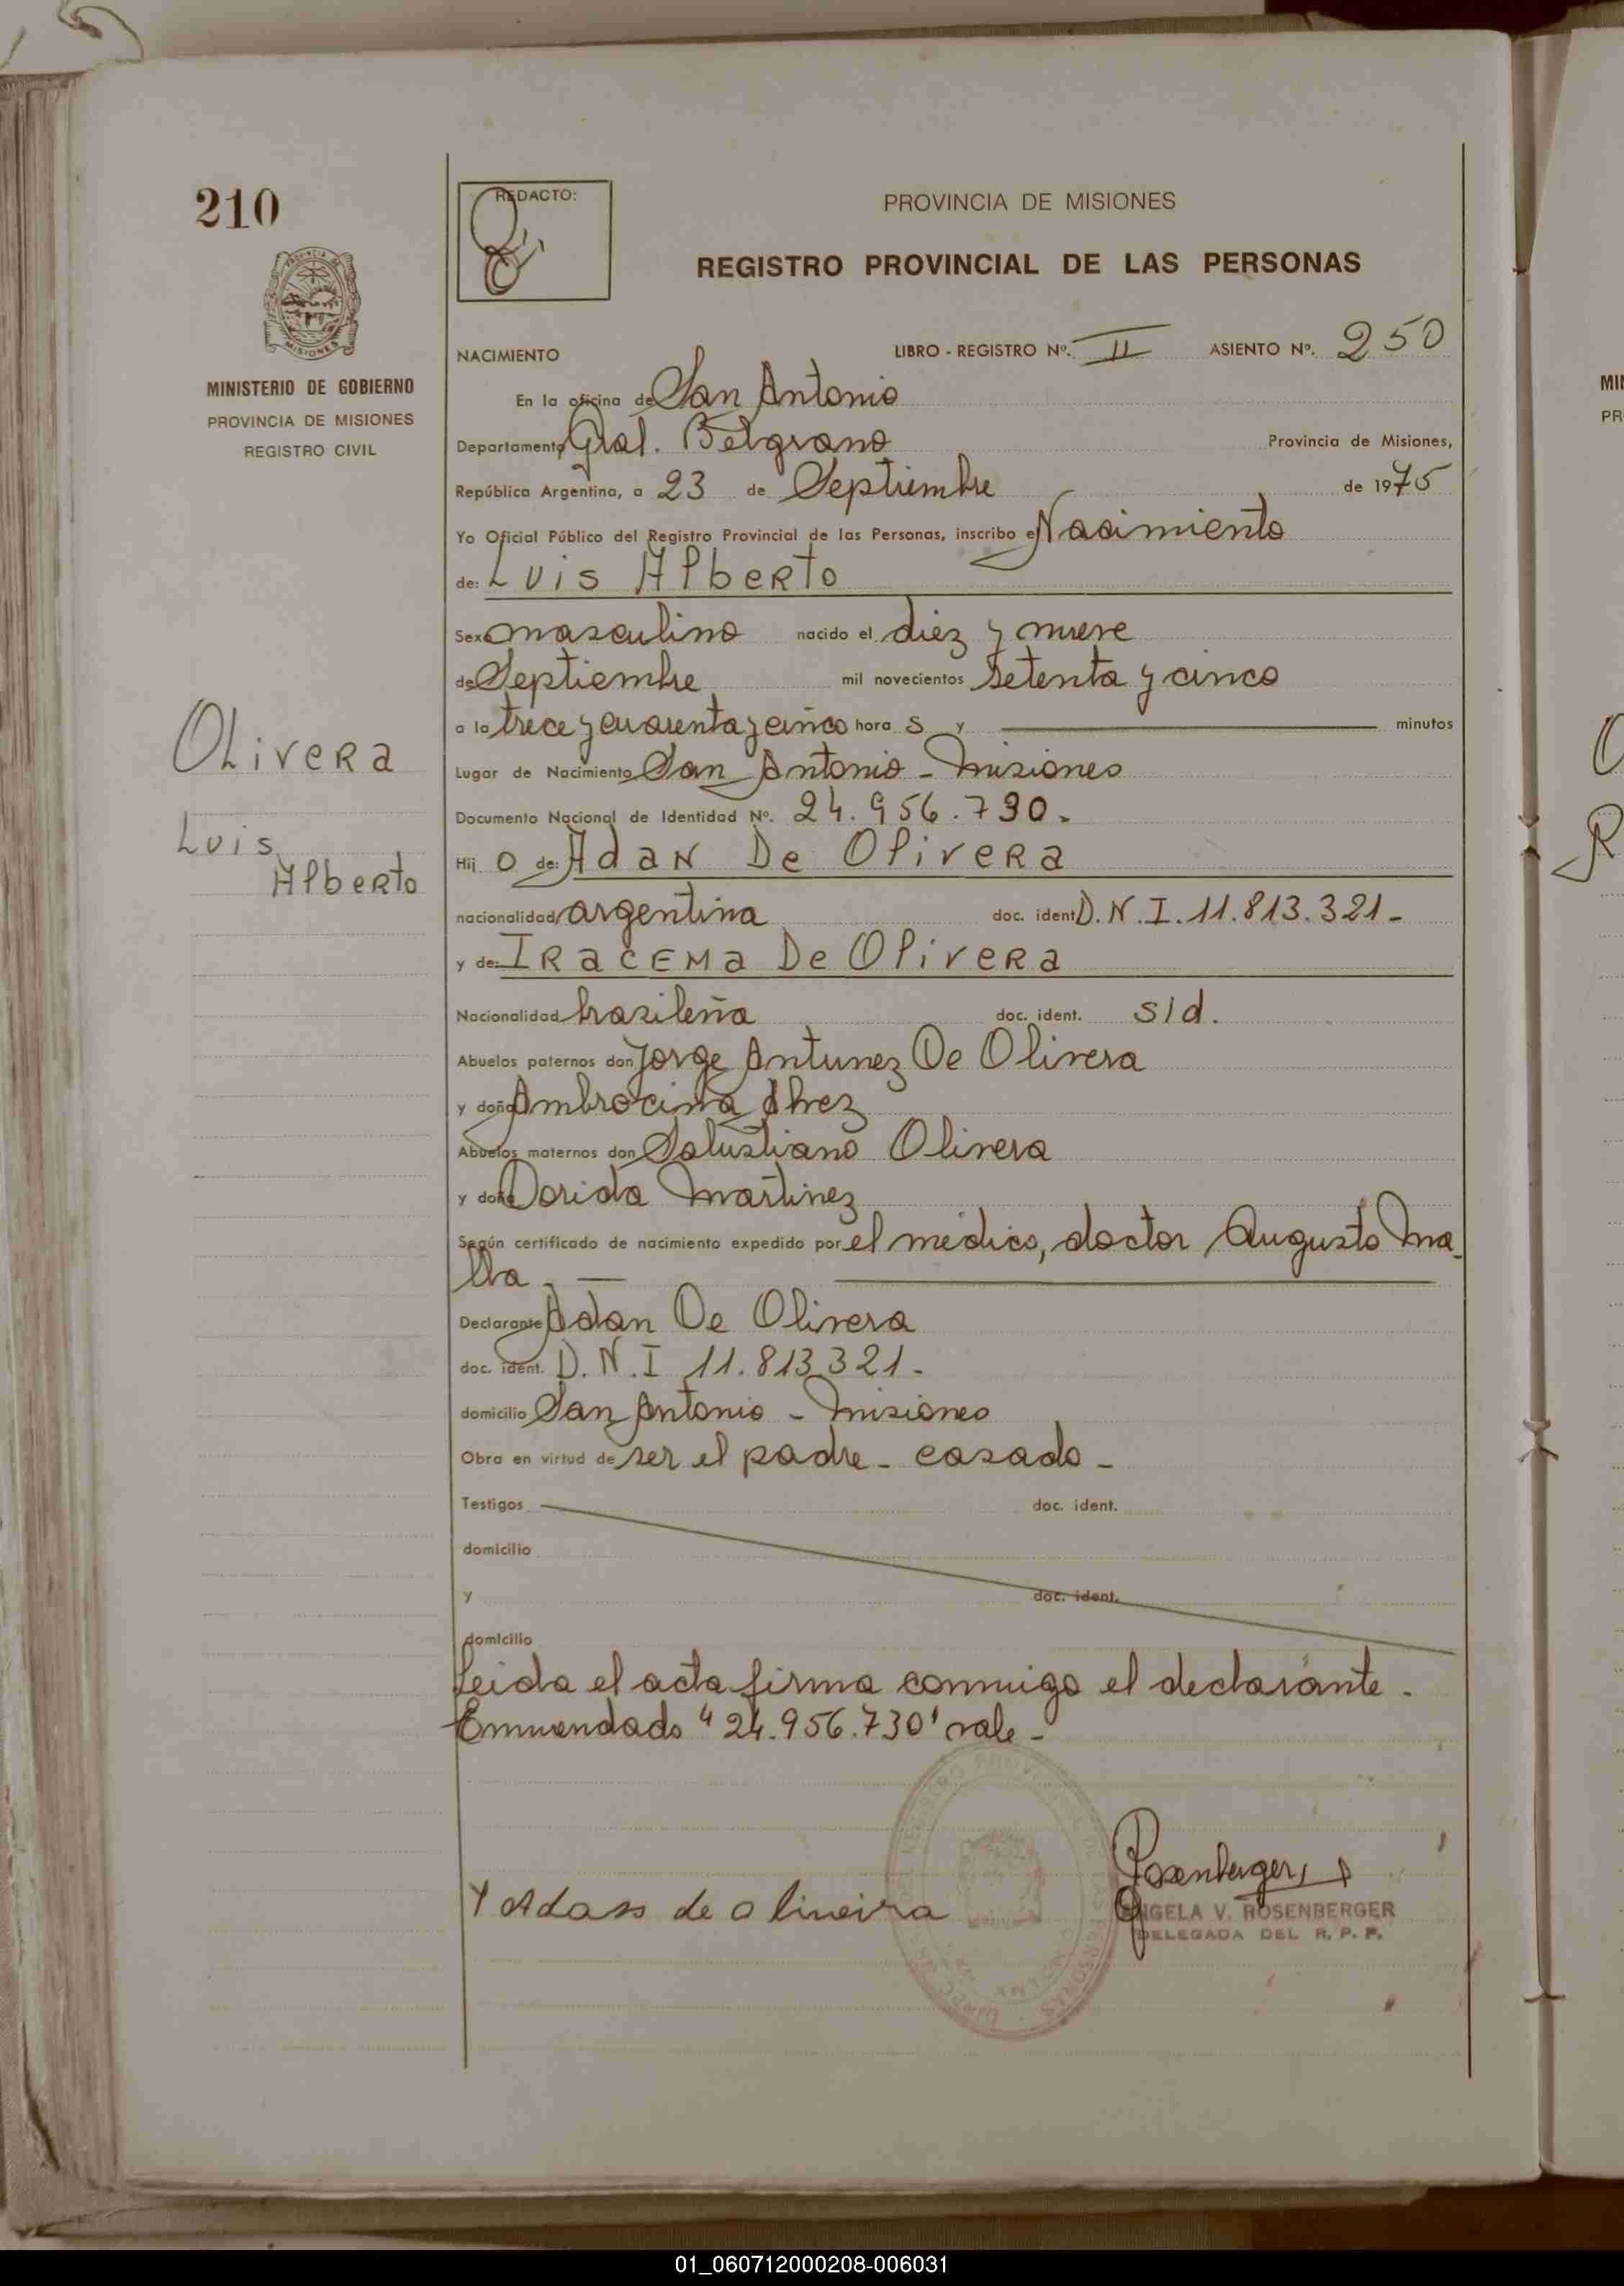 210
REDACTO:
PROVINCIA DE MISIONES
REGISTRO PROVINCIAL DE LAS PERSONAS
MINISTERIO DE GOBIERNO
PROVINCIA DE MISIONES
REGISTRO CIVIL
NACIMIENTO LIBRO - REGISTRO Nº. II ASIENTO Nº. 250
En la oficina de San Antonio
Departamento Gral. Belgrano Provincia de Misiones,
República Argentina, a 23 de Septiembre de 1975
Yo Oficial Público del Registro Provincial de las Personas, inscribo el Nacimiento
de: Luis Alberto
Sexo masculino nacido el diez y nueve
de Septiembre mil novecientos setenta y cinco
a la trece y cuarenta y cinco hora s y minutos
Olivera
Luis
Alberto
Lugar de Nacimiento San Antonio - Misiones
Documento Nacional de Identidad Nº. 24.956.730.-
Hij o de: Adan De Olivera
nacionalidad argentina doc. ident. D.N.I. 11.813.321-
y de: Iracema De Olivera
Nacionalidad brasileña doc. ident. s/d.
Abuelos paternos don Jorge Antunez De Olivera
y doña Ambrocina
Abuelos maternos don Salustiano Olivera
y doña Dorida Martinez
Según certificado de nacimiento expedido por el médico, doctor Augusto Ma-
Declarante Adan De Olivera
doc. ident. D.N.I 11.813.321-
domicilio San Antonio - Misiones
Obra en virtud de ser el padre - casado -
Testigos doc. ident.
domicilio
y doc. ident.
domicilio
Leida el acta firma conmigo el declarante.
Enmendado "24.956.730" vale -
Rosenberger
Adass de oliveira
ANGELA V. ROSENBERGER
DELEGADA DEL R. P. P.
01_060712000208-006031